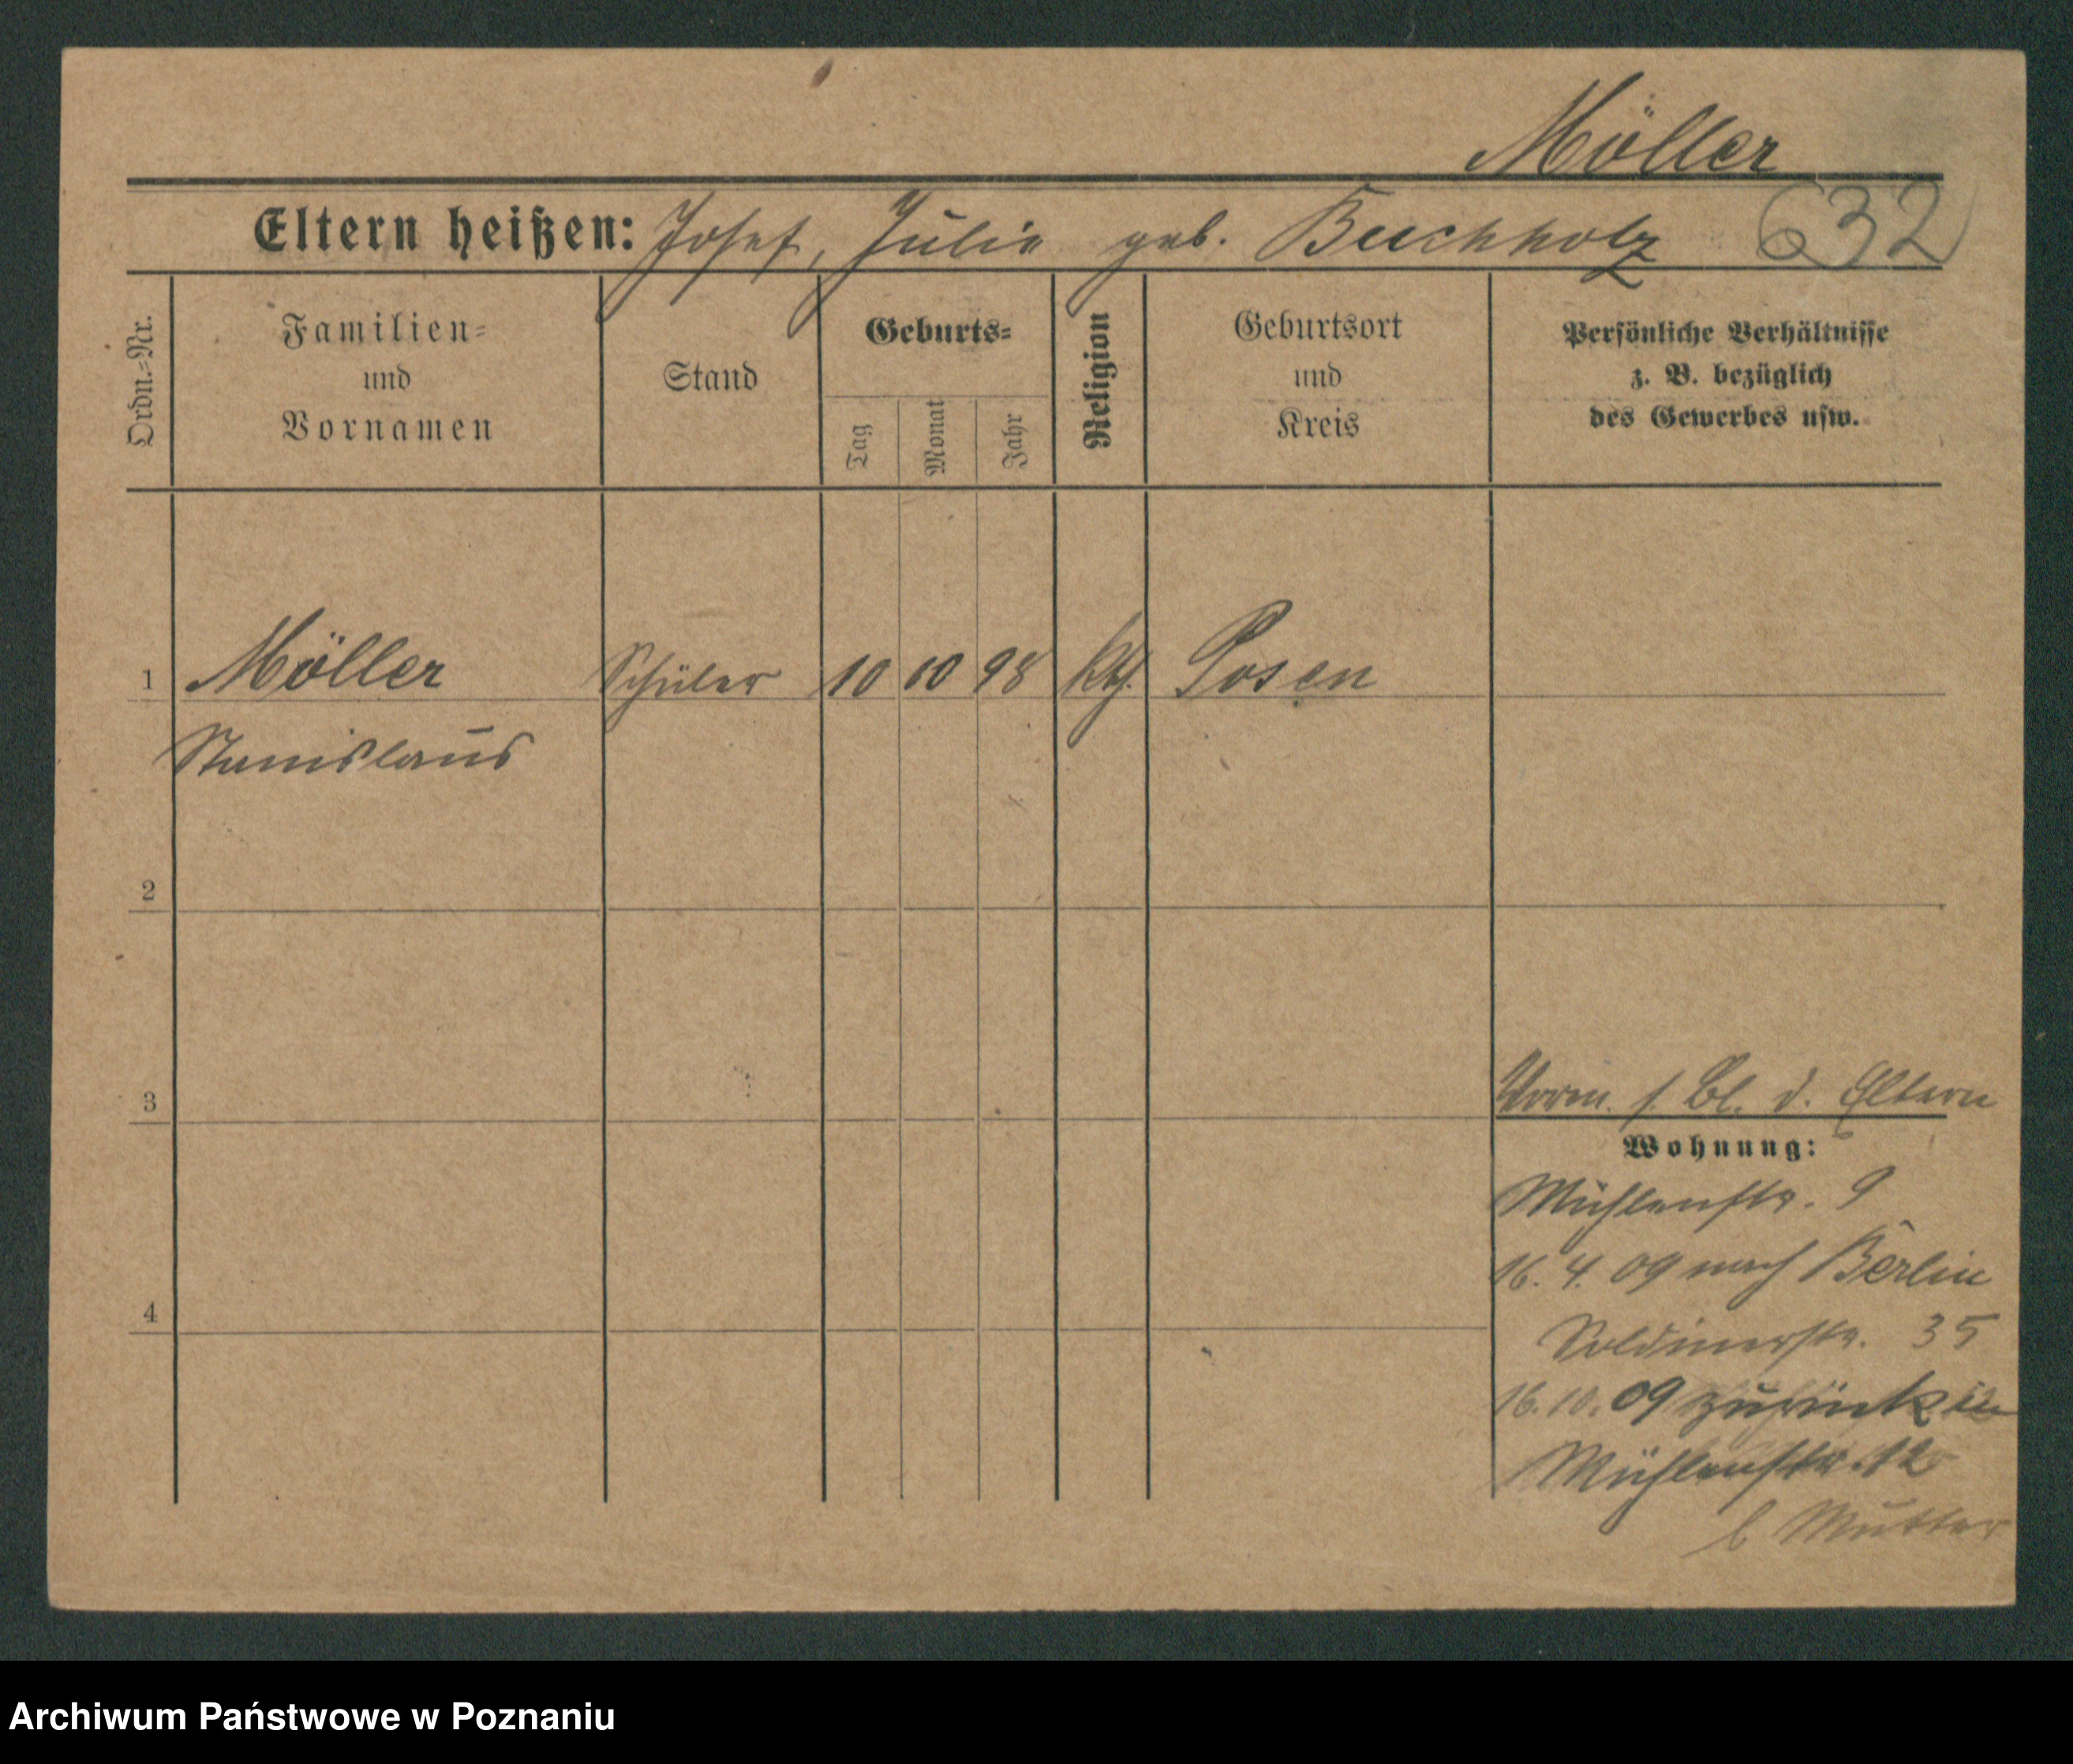 Möller
Eltern heißen: Josef, Julie geb. Buchholz 632
Ordn.-Nr.
Familien-
und
Vornamen
Stand
Geburts-
Tag
Monat
Jahr
Religion
Geburtsort
und
Kreis
Persönliche Verhältnisse
z. B. bezüglich
des Gewerbes usw.
1 Möller Schüler 10 10 98 kth. Posen
Stanislaus
2
3
4
Vorm. s. Bl. d. Eltern
Wohnung:
Mühlenstr. 9
16. 4. 09 nach Berlin
Soldinerstr. 35
16. 10. 09 zurück in
Mühlenstr. 12
b Mutter
Archiwum Państwowe w Poznaniu